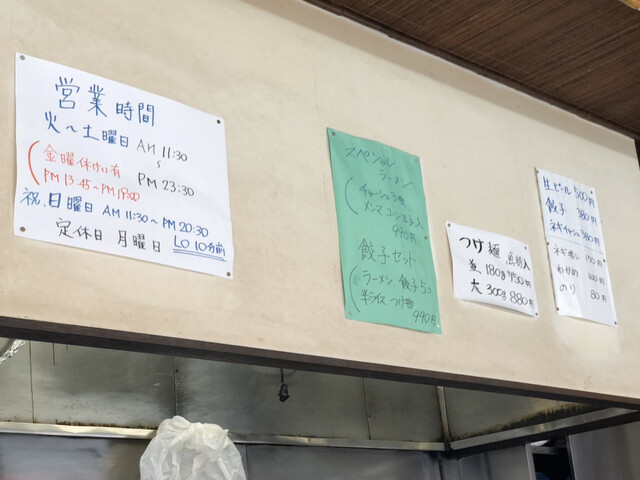 営業時間
火〜土曜日 AM 11:30
〜
PM 23:30
金曜休けい有
PM 13:45〜PM 19:00
祝.日曜日 AM 11:30〜PM 20:30
定休日 月曜日 LO 10分前
スペシャル
ラーメン
チャーシュー3枚
メンマ コンブ 玉子入
990円
餃子セット
ラーメン 餃子5コ
半ライス つけ物
990円
つけ麺 魚粉入
並 180g 750円
大 300g 880円
生ビール 500円
餃子 380円
ネギチャーシュー 380円
ネギ増し 130円
わかめ 100円
のり 80円